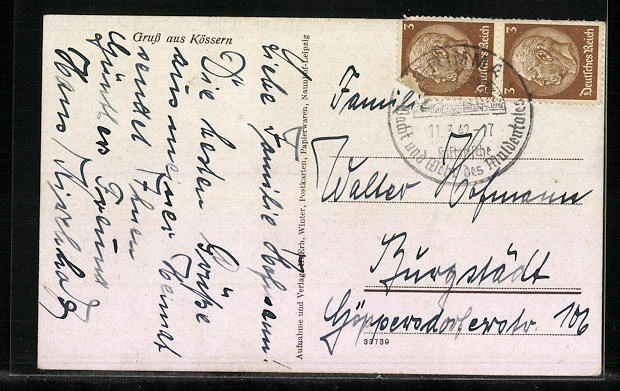 Gruß aus Kössern
Liebe Familie Hofmann!
Die besten Grüße
aus meiner Heimat
sendet Ihnen
Günthers Freund
Hans
Aufnahme und Verlag: Erh. Winter, Postkarten, Papierwaren, Naunhof-Leipzig
3 Deutsches Reich
3 Deutsches Reich
GRIMMA
11.3.42.-17
Stadt und Perle des Muldentales
Familie
Walter Hofmann
Burgstädt
Göppersdorferstr. 106
33739